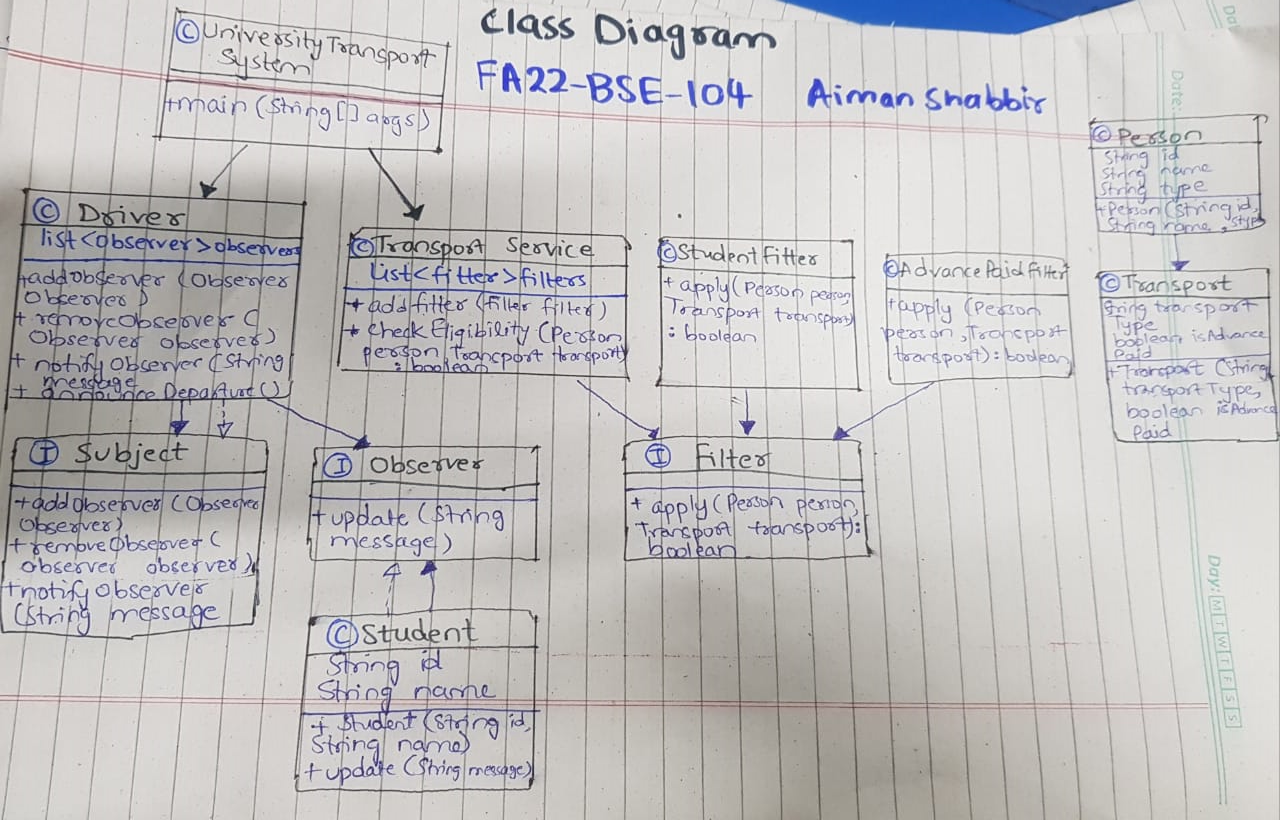 Class Diagram
FA22-BSE-104 Aiman Shabbir
© University Transport
System
+main (String[] args)
© Driver
list<observer>observers
+addobserver (Observer
Observer)
+ removeObserver (
Observer observer)
+ notify Observer (String
message
+ announce Departure()
© Transport Service
List<fitter>filters
+ add fitter (filter filter)
+ check Eligibility (Person
person, transport transport)
: boolean
© Student Fitter
+ apply (Person person
Transport transport)
: boolean
© Advance Paid Filter
+apply (Person
person, Transport
transport): boolean
© Person
String id
String name
String type
+Person (String id,
String name,
© Transport
String transport
Type
boolean isAdvance
Paid
+Transport (String
transport Type,
boolean isAdvance
Paid
I Subject
+addobserver (Observer
Observer)
+ removeObserver (
observer observer)
+notify observer
(String message
I Observer
+update (String
message)
I Filter
+ apply (Person person,
Transport transport):
boolean
© Student
String id
String name
+ Student (String id,
String name)
+ update (String message)
Date:
Day: M T W T F S S